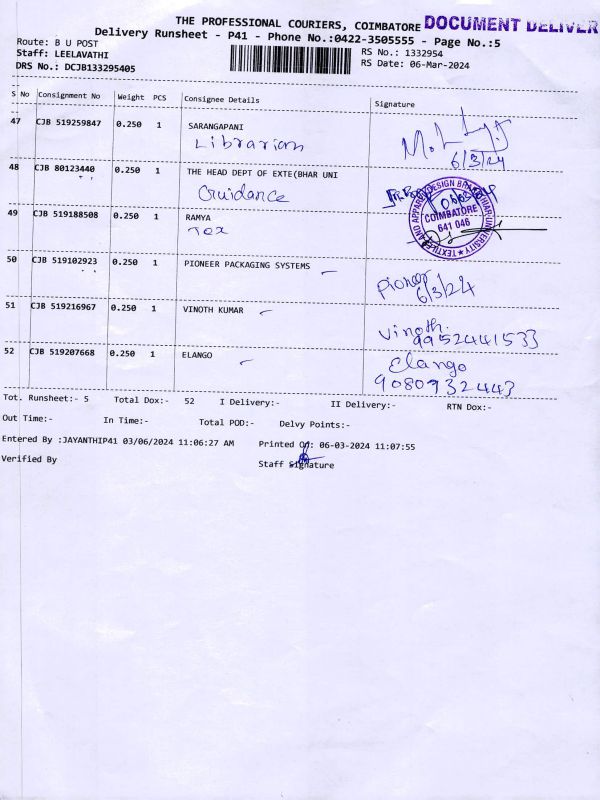 THE PROFESSIONAL COURIERS, COIMBATORE DOCUMENT DELIVER
Delivery Runsheet - P41 - Phone No.:0422-3505555 - Page No.:5
Route: B U POST
RS No.: 1332954
Staff: LEELAVATHI
RS Date: 06-Mar-2024
DRS No.: DCJB133295405
S No Consignment No Weight PCS Consignee Details Signature
47 CJB 519259847 0.250 1 SARANGAPANI
Librarian
6/3/24
48 CJB 80123440 0.250 1 THE HEAD DEPT OF EXTE(BHAR UNI
Guidance
TEXTILES AND APPAREL DESIGN BHARATHIAR UNIVERSITY
COIMBATORE
641 046
49 CJB 519188508 0.250 1 RAMYA
Tex
50 CJB 519102923 0.250 1 PIONEER PACKAGING SYSTEMS
Pioneer
6/3/24
51 CJB 519216967 0.250 1 VINOTH KUMAR
Vinoth.
9952441533
52 CJB 519207668 0.250 1 ELANGO
Elango
9080932443
Tot. Runsheet:- 5 Total Dox:- 52 I Delivery:- II Delivery:- RTN Dox:-
Out Time:- In Time:- Total POD:- Delvy Points:-
Entered By :JAYANTHIP41 03/06/2024 11:06:27 AM Printed On: 06-03-2024 11:07:55
Verified By
Staff Signature